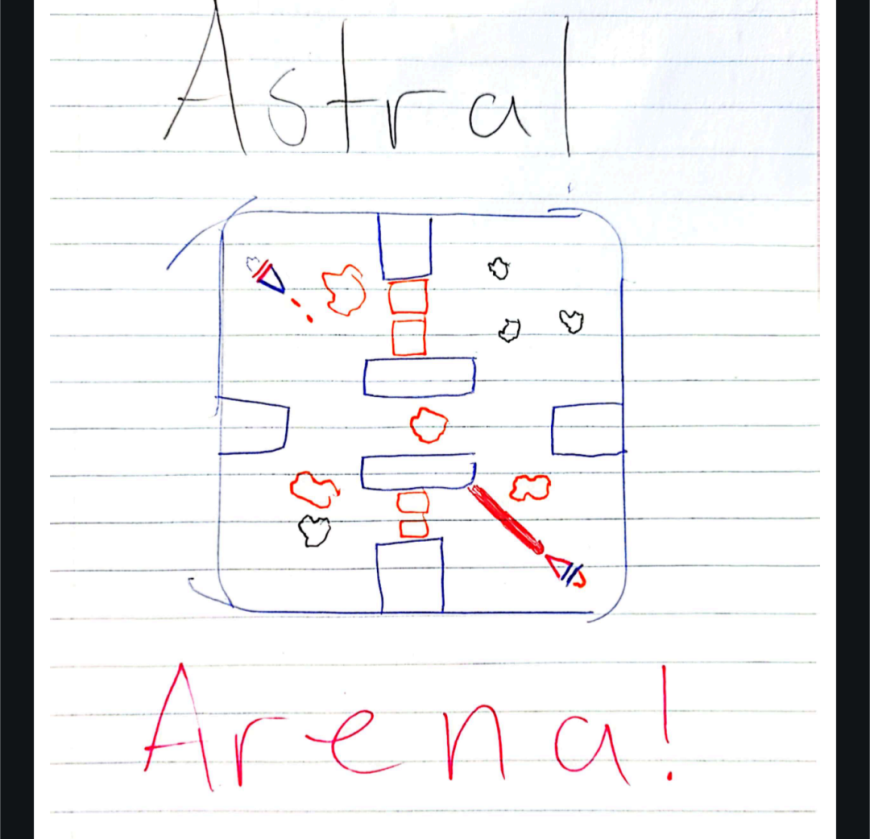 Astral
Arena!